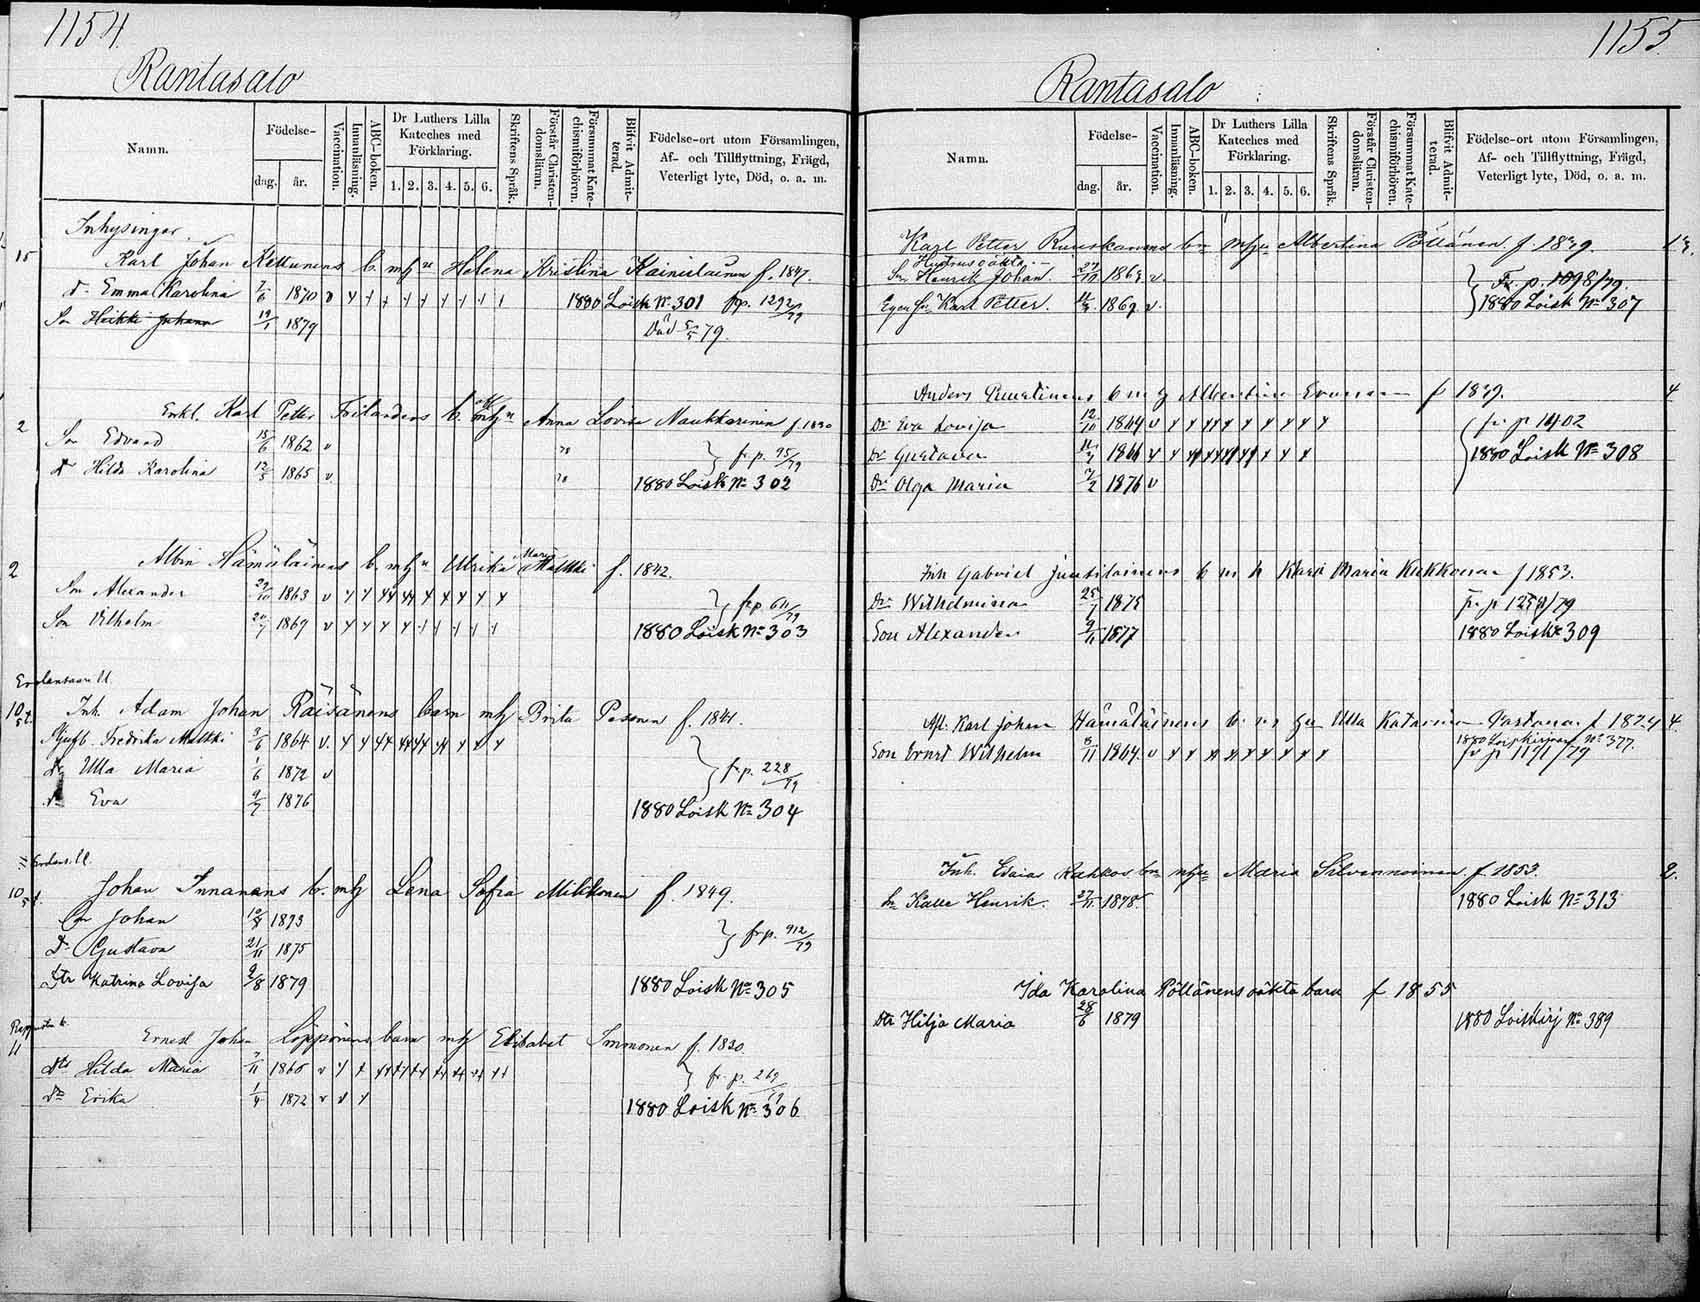 1154.
Rantasalo
Namn.
Födelse-
dag. år.
Vaccination.
Innanläsning.
ABC-boken.
Dr Luthers Lilla Kateches med Förklaring.
1. 2. 3. 4. 5. 6.
Skriftens Språk.
Förstår Christendomsläran.
Försummat Katechismiförhören.
Blifvit Admitterad.
Födelse-ort utom Församlingen, Af- och Tillflyttning, Frägd, Veterligt lyte, Död, o. a. m.
Inhysingar
15 Karl Johan Kettunens b. m hu Helena Kristina Kainulainen f. 1847.
Dr Emma Karolina 7/6 1870 v 1880 Loisk No 301 frp. 1292/79
Son Heikki Juhana 19/1 1879 Död 5/5 79.
2 Enkl. Karl Petter Frilanders b. m hu Anna Lovisa Naukkarinen f. 1830
Son Edvard 15/6 1862 v } fr p. 95/79
Dr Hilda Karolina 12/5 1865 v 1880 Loisk No 302
2 Albin Hämäläinens b. m hu Ulrika Maria Malkki f. 1842.
Son Alexander 29/10 1863 v } fr p 611/79
Son Vilhelm 20/7 1869 v 1880 Loisk No 303
10 Inh. Adam Johan Räisänens barn m h Brita Pasonen f. 1841.
Styfb. Fredrika Malkki 3/6 1864 v.
Dr Ulla Maria 1/6 1872 v } fr p. 228/79
Dr Eva 9/7 1876
1880 Loisk No 304
10 Johan Innanens b. m h Lena Sofia Miikkonen f. 1849.
Son Johan 1873
Dr Gustava 21/11 1875 } fr p. 912/79
Dtr Katrina Lovisa 9/8 1879 1880 Loisk No 305
11 Ernest Johan Löppönens barn m h Elisabet Immonen f. 1830.
Dtr Hilda Maria 7/11 1865 v } fr. p. 269
Dr Erika 1/4 1872 v
1880 Loisk No 306
1155.
Rantasalo
Namn.
Födelse-
dag. år.
Vaccination.
Innanläsning.
ABC-boken.
Dr Luthers Lilla Kateches med Förklaring.
1. 2. 3. 4. 5. 6.
Skriftens Språk.
Förstår Christendomsläran.
Försummat Katechismiförhören.
Blifvit Admitterad.
Födelse-ort utom Församlingen, Af- och Tillflyttning, Frägd, Veterligt lyte, Död, o. a. m.
Karl Petter Ruuskanens bn m hu Albertina Pöllänen f. 1839.
Hustrus oäkta
Sn Henrik Johan 27/10 1863 v. } Fr. p. 1098/79.
Egen Sn Karl Petter. 1869 v. 1880 Loisk No 307
Anders Puustinens b m h Albertina Evonen f 1839. 4
Dr Eva Lovisa 12/10 1864 v fr p 1402
Dr Gustava 1866 1880 Loisk No 308
Dr Olga Maria 7/2 1876 v
Inh Gabriel Juutilainens b m h Klara Maria Kukkonen f 1853.
Dr Wilhelmina 25/7 1875 Fr. p 1258/79
Son Alexander 9/11 1877 1880 Loisk 309
Afl. Karl Johan Hämäläinens b. m hu Ulla Katarina Partanen f 1824 4
Son Ernst Wilhelm 3/11 1864. v 1880 Loiskirjan No 377.
fr p 1171/79
Inh. Esaias Kahkos bn m hu Maria Silvennoinen f. 1853. 2.
Sn Kalle Henrik. 27/11 1878. 1880 Loisk No 313
Ida Karolina Pöllänens oäkta barn f 1855
Dtr Hilja Maria 28/6 1879 1880 Loiskirj No 389